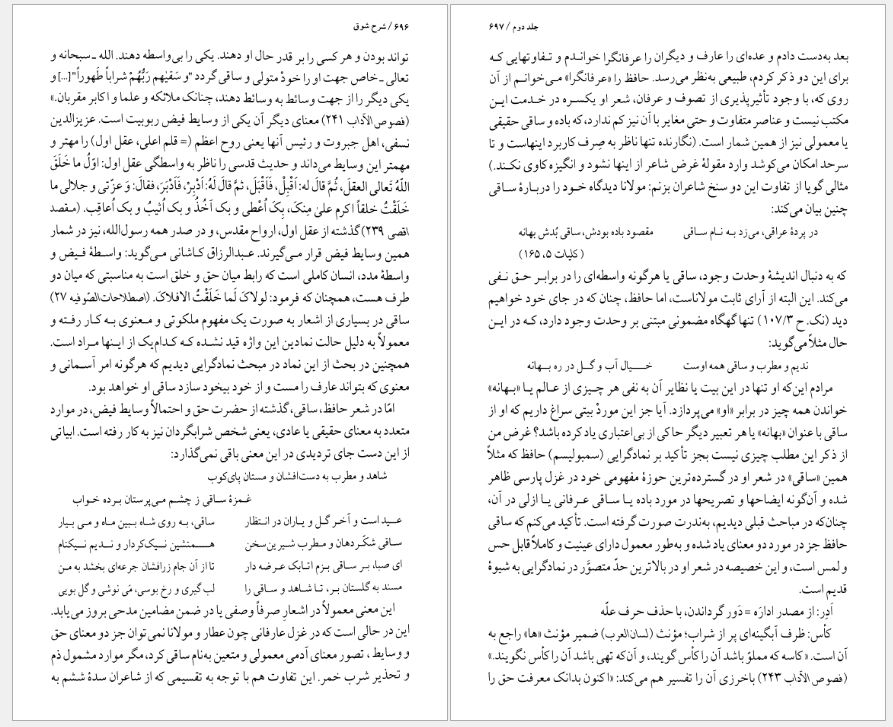 ۶۹۶ / شرح شوق
تواند بودن و هر کسی را بر قدر حال او دهند. یکی را بی‌واسطه دهند. الله ـ سبحانه و
تعالی ـ خاص جهت او را خودْ متولی و ساقی گردد "و سَقیٰهم رَبُّهُم شراباً طَهوراً" [...] و
یکی دیگر را از جهت وسائط به وسائط دهند، چنانک ملائکه و علما و اکابر مقربان.»
(فصوص الآداب ۲۴۱) معنای دیگر آن یکی از وسایط فیض ربوبیت است. عزیزالدین
نسفی، اهل جبروت و رئیس آنها یعنی روح اعظم (= قلم اعلی، عقل اول) را مهتر و
مهمتر این وسایط می‌داند و حدیث قدسی را ناظر به واسطگی عقل اول: اوّلُ ما خَلَقَ
اللهُ تَعالی العقلَ، ثُمَّ قالَ له: اَقْبِلْ، فَاَقْبَلَ، ثمَّ قالَ لَهُ: اَدْبِرْ، فَاَدْبَرَ، فقالَ: وَ عزّتی و جلالی ما
خَلَقْتُ خلقاً اکرم علیٰ مِنکَ، بِکَ اُعْطی و بک آخُذُ و بک اُثیبُ و بک اُعاقِب. (مقصد
اقصی ۲۳۹) گذشته از عقل اول، ارواح مقدس، و در صدر همه رسول‌الله، نیز در شمار
همین وسایط فیض قرار می‌گیرند. عبدالرزاق کاشانی می‌گوید: واسطهٔ فیض و
واسطهٔ مدد، انسان کاملی است که رابط میان حق و خلق است به مناسبتی که میان دو
طرف هست، همچنان که فرمود: لولاکَ لَما خَلَقْتُ الافلاکَ. (اصطلاحات‌الصّوفیه ۲۷)
ساقی در بسیاری از اشعار به صورت یک مفهوم ملکوتی و معنوی به کار رفته و
معمولاً به دلیل حالت نمادین این واژه قید نشده که کدام‌یک از اینها مراد است.
همچنین در بحث از این نماد در مبحث نمادگرایی دیدیم که هرگونه امر آسمانی و
معنوی که بتواند عارف را مست و از خود بیخود سازد ساقی او خواهد بود.
امّا در شعر حافظ، ساقی، گذشته از حضرت حق و احتمالاً وسایط فیض، در موارد
متعدد به معنای حقیقی یا عادی، یعنی شخص شرابگردان نیز به کار رفته است. ابیاتی
از این دست جای تردیدی در این معنی باقی نمی‌گذارد:
شاهد و مطرب به دست‌افشان و مستان پای‌کوب
غمزهٔ ساقی ز چشم می‌پرستان برده خواب
عید است و آخر گل و یاران در انتظار ساقی، به روی شاه ببین ماه و می بیار
ساقی شکّردهان و مطرب شیرین‌سخن همنشین نیک‌کردار و ندیم نیکنام
ای صبا، بر ساقی بزم اتابک عرضه دار تا از آن جام زرافشان جرعه‌ای بخشد به من
مسند به گلستان بر، تا شاهد و ساقی را لب گیری و رخ بوسی، مَی نوشی و گل بویی
این معنی معمولاً در اشعارِ صرفاً وصفی یا در ضمن مضامین مدحی بروز می‌یابد.
این در حالی است که در غزل عارفانی چون عطار و مولانا نمی‌توان جز دو معنای حق
و وسایط، تصور معنای آدمی معمولی و متعین به‌نام ساقی کرد، مگر موارد مشمول ذم
و تحذیر شرب خمر. این تفاوت هم با توجه به تقسیمی که از شاعران سدهٔ ششم به
جلد دوم / ۶۹۷
بعد به‌دست دادم و عده‌ای را عارف و دیگران را عرفانگرا خواندم و تفاوتهایی که
برای این دو ذکر کردم، طبیعی به‌نظر می‌رسد. حافظ را «عرفانگرا» می‌خوانم از آن
روی که، با وجود تأثیرپذیری از تصوف و عرفان، شعر او یکسره در خدمت این
مکتب نیست و عناصر متفاوت و حتی مغایر با آن نیز کم ندارد، که باده و ساقی حقیقی
یا معمولی نیز از همین شمار است. (نگارنده تنها ناظر به صِرف کاربرد اینهاست و تا
سرحد امکان می‌کوشد وارد مقولهٔ غرض شاعر از اینها نشود و انگیزه‌کاوی نکند.)
مثالی گویا از تفاوت این دو سنخ شاعران بزنم: مولانا دیدگاه خود را دربارهٔ ساقی
چنین بیان می‌کند:
در پردهٔ عراقی، می‌زد به نام ساقی مقصود باده بودش، ساقی بُدش بهانه
(کلیات ۵، ۱۶۵)
که به دنبال اندیشهٔ وحدت وجود، ساقی یا هرگونه واسطه‌ای را در برابر حق نفی
می‌کند. این البته از آرای ثابت مولاناست، اما حافظ، چنان که در جای خود خواهیم
دید (نک. ح ۱۰۷/۳) تنها گهگاه مضمونی مبتنی بر وحدت وجود دارد، که در این
حال مثلاً می‌گوید:
ندیم و مطرب و ساقی همه اوست خیال آب و گل در ره بهانه
مرادم این‌که او تنها در این بیت یا نظایر آن به نفی هر چیزی از عالم یا «بهانه»
خواندن همه چیز در برابر «او» می‌پردازد. آیا جز این موردْ بیتی سراغ داریم که او از
ساقی با عنوان «بهانه» یا هر تعبیر دیگر حاکی از بی‌اعتباری یاد کرده باشد؟ غرض من
از ذکر این مطلب چیزی نیست بجز تأکید بر نمادگرایی (سمبولیسم) حافظ که مثلاً
همین «ساقی» در شعر او در گسترده‌ترین حوزهٔ مفهومی خود در غزل پارسی ظاهر
شده و آن‌گونه ایضاحها و تصریحها در مورد باده یا ساقی عرفانی یا ازلی در آن،
چنان‌که در مباحث قبلی دیدیم، به‌ندرت صورت گرفته است. تأکید می‌کنم که ساقی
حافظ جز در مورد دو معنای یاد شده و به‌طور معمول دارای عینیت و کاملاً قابل حس
و لمس است، و این خصیصه در شعر او در بالاترین حدّ متصوَّر در نمادگرایی به شیوهٔ
قدیم است.
اَدِر: از مصدر ادارَه = دَور گرداندن، با حذف حرف علّه
کأس: ظرف آبگینه‌ای پر از شراب؛ مؤنث (لسان‌العرب) ضمیر مؤنث «ها» راجع به
آن است. «کاسه که مملوّ باشد آن را کأس گویند، و آن‌که تهی باشد آن را کأس نگویند.»
(فصوص الآداب ۲۴۳) باخرزی آن را تفسیر هم می‌کند: «اکنون بدانک معرفت حق را